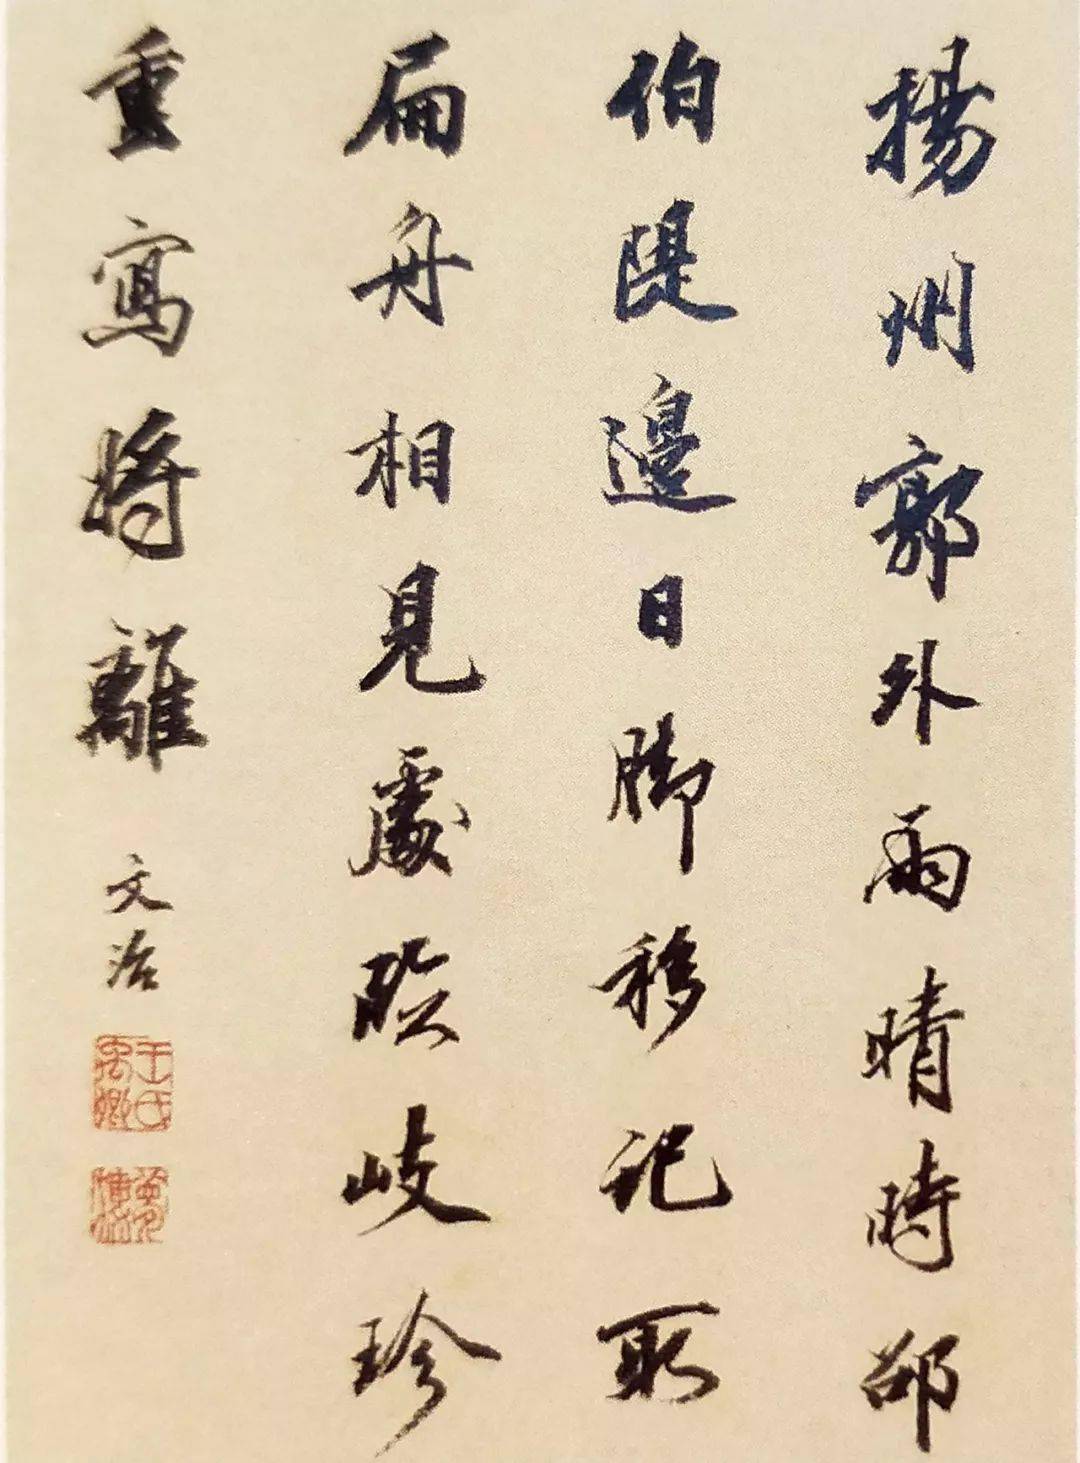 揚州郭外雨晴時邵
伯隄邊日脚移記取
扁舟相見處臨岐珍
重寫將離
文治
王氏禹卿